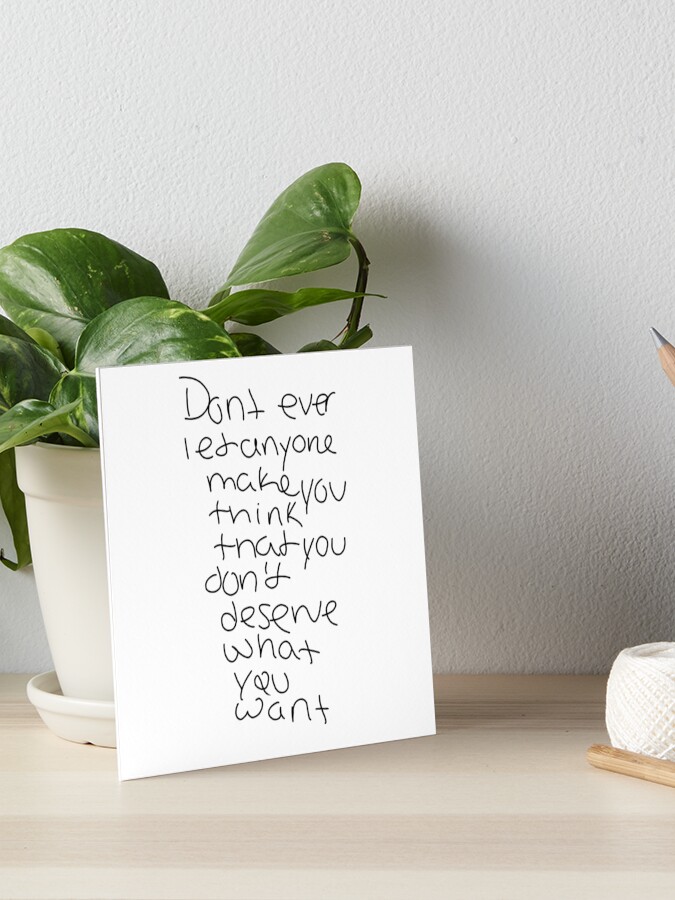 Dont ever
let anyone
make you
think
that you
don't
deserve
what
you
want